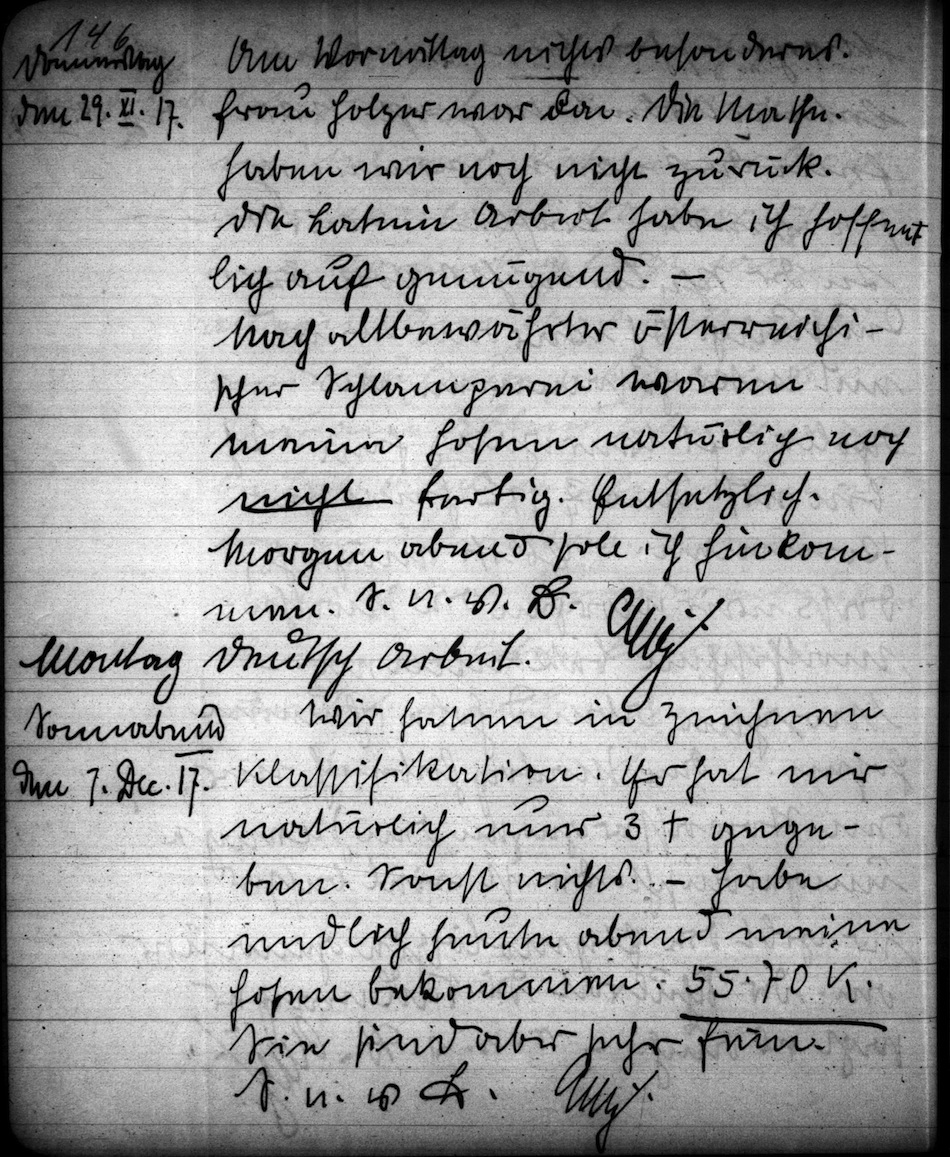 146
Donnerstag
den 29. XI. 17.
Am Vormittag nichts besonderes.
Frau Holzer war da. Die Mathe.
haben wir noch nicht zurück.
Die Latein Arbeit habe ich hoffent
lich auf genügend. —
Nach altbewährter österreichi-
scher Schlamperei waren
meine Hosen natürlich noch
nicht fertig. Entsetzlich.
Morgen abend soll ich hinkom-
men. S. u. w. K.
Montag Deutsch Arbeit.
Sonnabend
den 7. Dec. 17.
Wir hatten in Zeichnen
Klassifikation. Er hat mir
natürlich nur 3 + gege-
ben. Sonst nichts. — Habe
endlich heute abend meine
Hosen bekommen. 55.70 K.
Sie sind aber sehr fein.
S. u. w K.